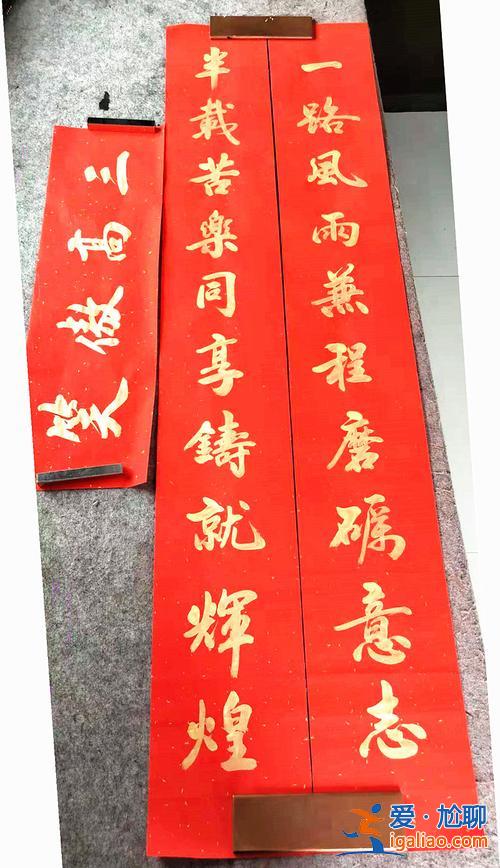 一路風雨兼程磨礪意志
半載苦樂同享鑄就輝煌
笑傲高三
爱·尬聊
igaliao.com